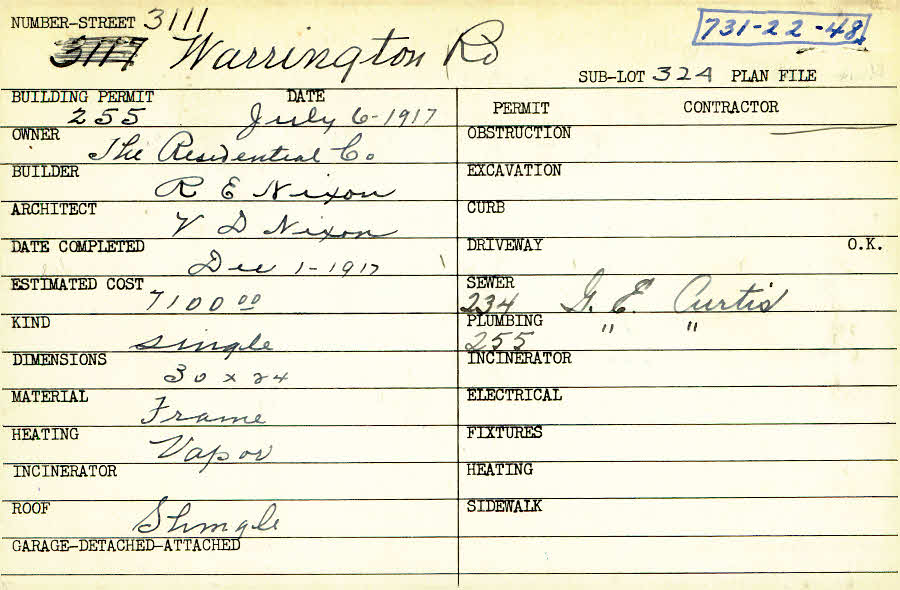 NUMBER-STREET 3111
731-22-48
3117 Warrington Rd
SUB-LOT 324 PLAN FILE
BUILDING PERMIT DATE
255 July 6-1917
OWNER
The Residential Co
BUILDER
R E Nixon
ARCHITECT
V D Nixon
DATE COMPLETED
Dec 1-1917
ESTIMATED COST
7100 00
KIND
single
DIMENSIONS
30 x 24
MATERIAL
Frame
HEATING
Vapor
INCINERATOR
ROOF
Shingle
GARAGE-DETACHED-ATTACHED
PERMIT CONTRACTOR
OBSTRUCTION
EXCAVATION
CURB
DRIVEWAY O.K.
SEWER
234 G. E. Curtis
PLUMBING " "
255
INCINERATOR
ELECTRICAL
FIXTURES
HEATING
SIDEWALK